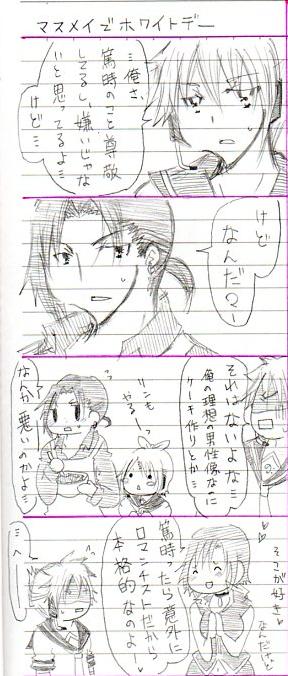 マスメイでホワイトデー
…俺さ、
篤時のこと尊敬
してるし、嫌いじゃな
いと思ってるよ…
けど…
けど
なんだァー
それはないよな…
俺の理想の男性像なのに
ケーキ作りとか…
リンも
やるーっ
なんか悪いのかよ…
そこが好き
なんだけど
篤時ったら意外に
ロマンチストだから
本格的なのよー!
…へー